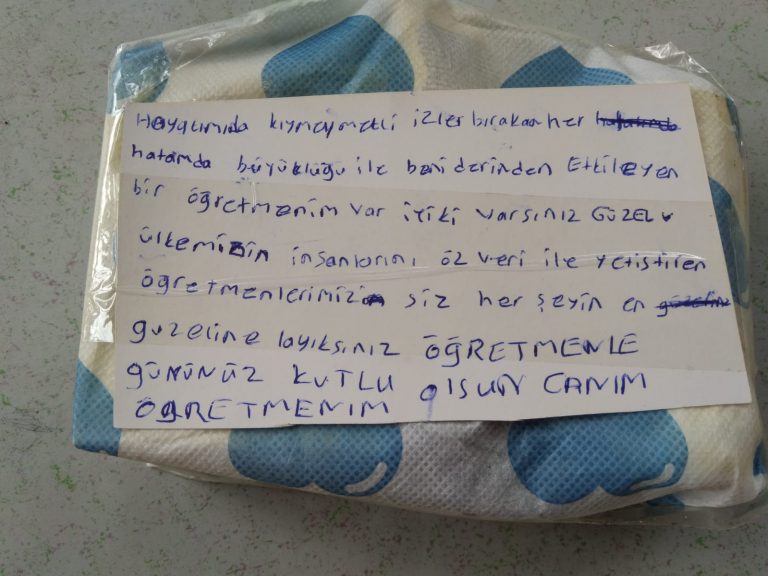 Hayatımıda kıymaymetli izler bırakan her
hatamda büyüklüğü ile beni derinden Etkileyen
bir öğretmenim var iyiki varsınız GÜZEL
ülkemizin insanlarını öz veri ile yetiştiren
öğretmenlerimiz siz her şeyin en
güzeline layıksınız ÖĞRETMENLE
GÜNÜNÜZ KUTLU OlSUN CANIM
ÖĞRETMENİM